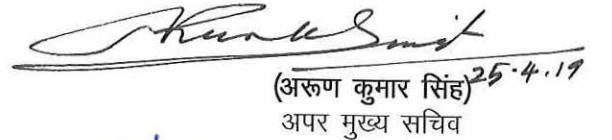 (अरूण कुमार सिंह) 25.4.19
अपर मुख्य सचिव